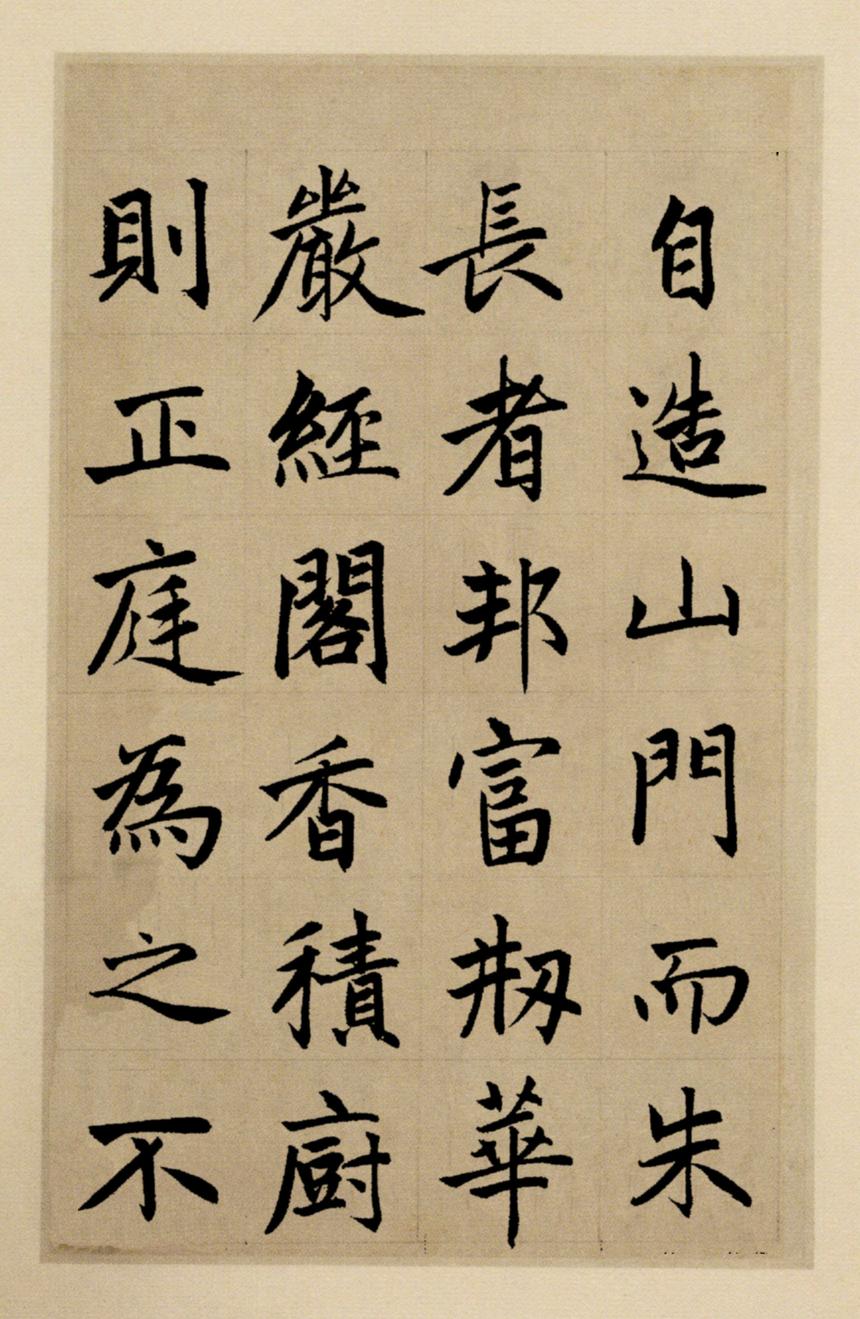 自造山門而朱
長者邦富刱華
嚴經閣香積廚
則正庭為之不